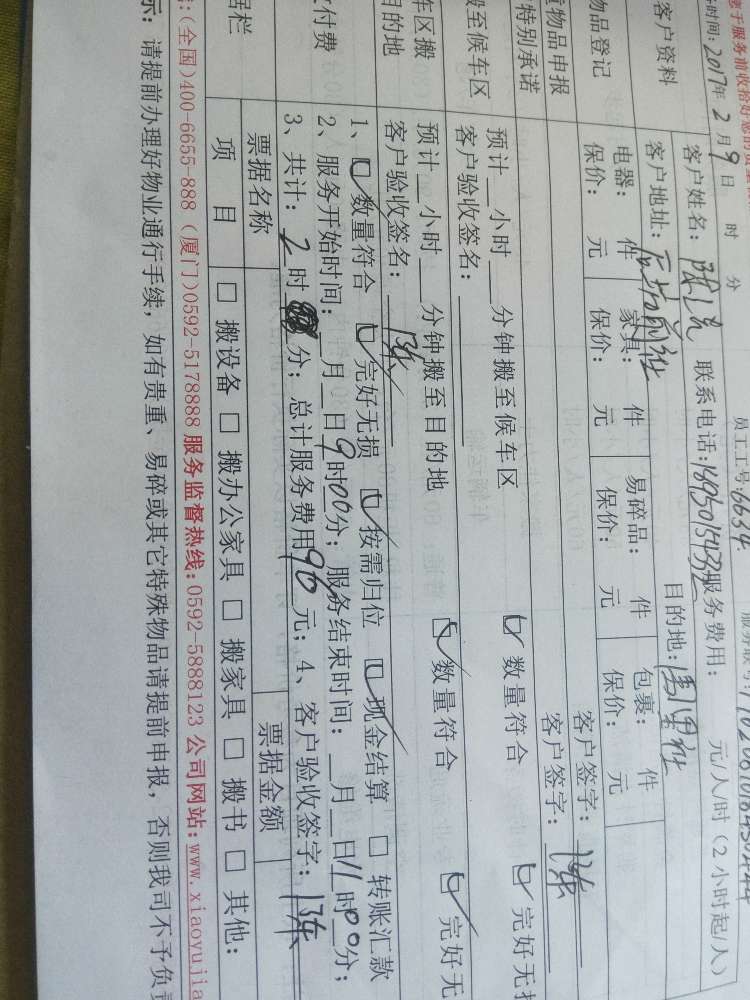 于服务前收拾好您的贵重
时间：2017年2月9日 时 分
员工工号：6634.
客户资料
客户姓名： 联系电话： 服务费用： 元/人/时（2小时起/人）
客户地址： 目的地：
物品登记
电器： 件 家具： 件 易碎品： 件 包裹： 件
保价： 元 保价： 元 保价： 元 保价： 元
物品申报
客户签字：陈
特别承诺
客户签字：
搬至候车区
预计 小时 分钟搬至候车区 ☑ 数量符合 ☑ 完好无损
客户验收签名：
车区搬
目的地
预计 小时 分钟搬至目的地 ☑ 数量符合 ☑ 完好无
客户验收签名：陈
付费
1、☑ 数量符合 ☑ 完好无损 ☑ 按需归位 ☑ 现金结算 □ 转账汇款
2、服务开始时间： 月 日9时00分；服务结束时间： 月 日11时00分；
3、共计：2时 分；总计服务费用90元；4、客户验收签字：陈
据栏
票据名称 票据金额
项 目 □ 搬设备 □ 搬办公家具 □ 搬家具 □ 搬书 □ 其他：
：(全国)400-6655-888 (厦门)0592-5178888 服务监督热线：0592-5888123 公司网站：www.xiaoyujia
示：请提前办理好物业通行手续，如有贵重、易碎或其它特殊物品请提前申报，否则我司不予负责